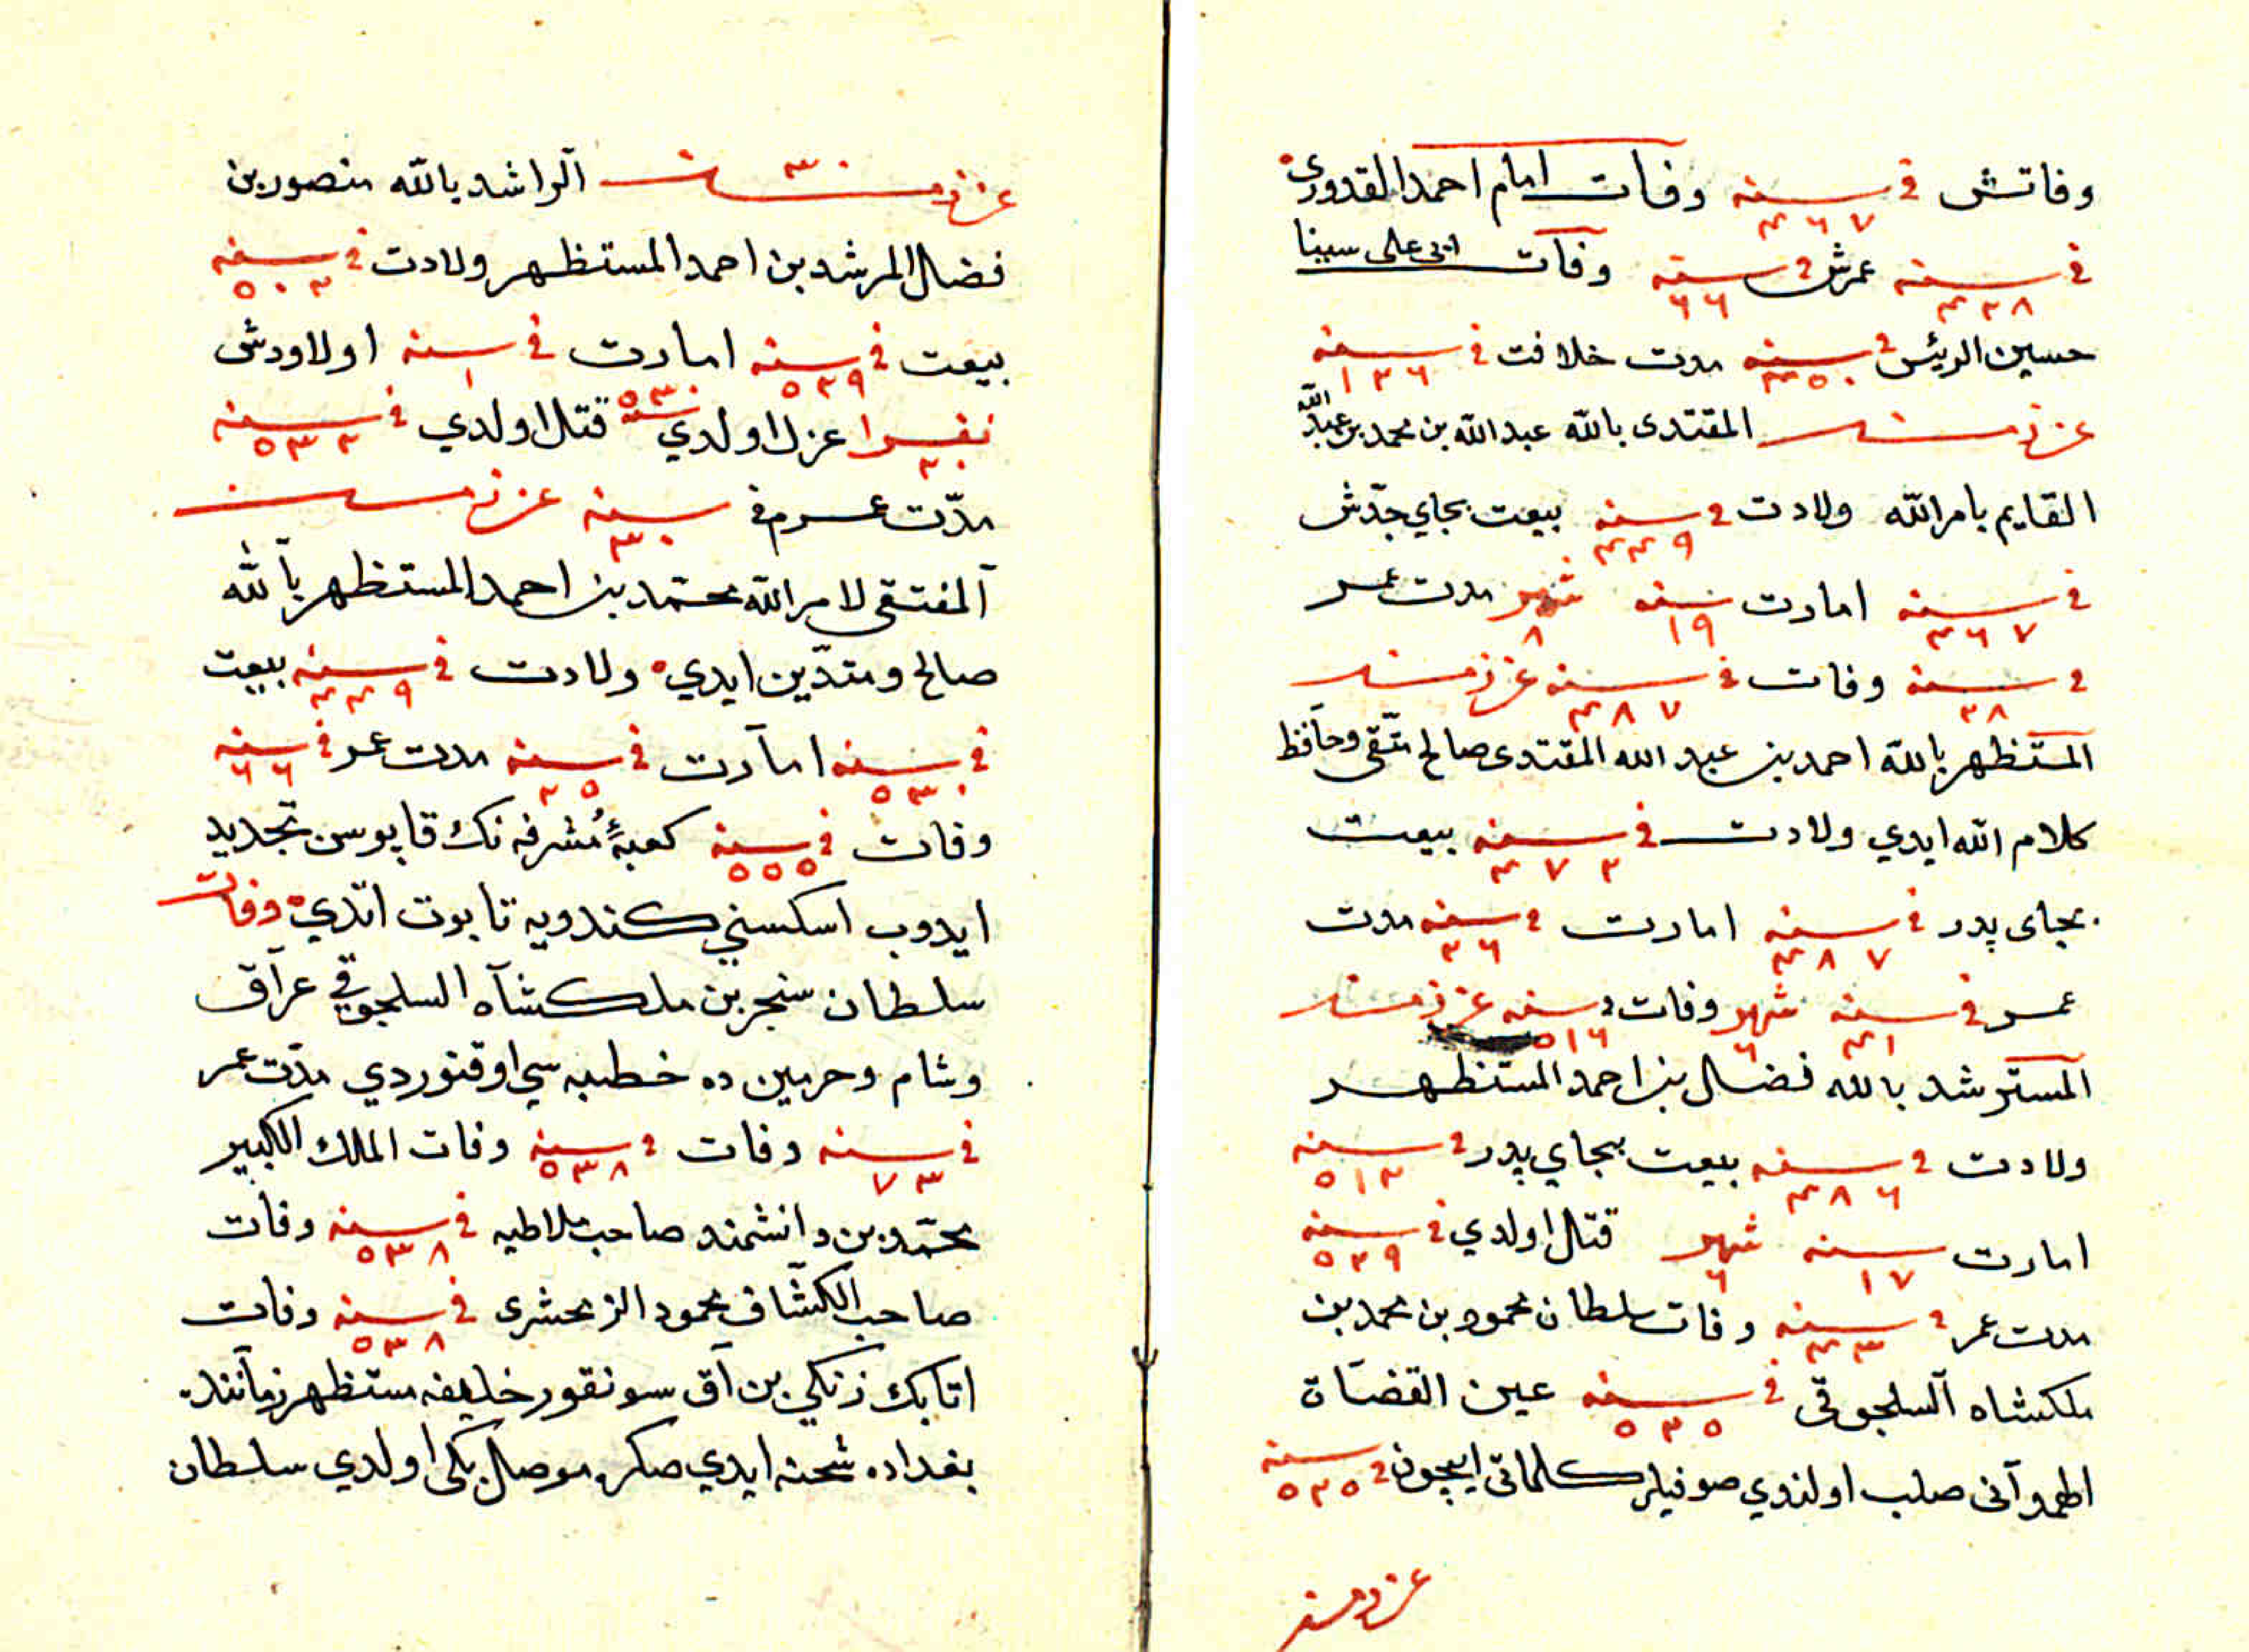 وفاتش فی سنه ٤٦٧ وفات امام احمد القدوری
فی سنه ٤٢٨ عمرش فی سنه ٦٦ وفات ابی علی سینا
حسین الرئیس فی سنه ٤٥٠ مدت خلافت فی سنه ١٢٦
المقتدی بالله عبدالله بن محمد بن عبدالله
القایم بامرالله ولادت فی سنه ٤٤٩ بیعت بجای جدّش
فی سنه ٤٦٧ امارت سنه ١٩ شهر ٨ مدت عمر
فی سنه ٣٨ وفات فی سنه ٤٨٧
المستظهر بالله احمد بن عبد الله المقتدی صالح متقی وحافظ
کلام الله ایدی ولادت فی سنه ٤٧٢ بیعت
بجای پدر فی سنه ٤٨٧ امارت فی سنه ٢٦ مدت
عمر فی سنه ٤١ شهر ٦ وفات فی سنه ٥١٦
المسترشد بالله فضال بن احمد المستظهر
ولادت فی سنه ٤٨٦ بیعت بجای پدر فی سنه ٥١٢
امارت سنه ١٧ شهر ٦ قتال اولدی فی سنه ٥٢٩
مدت عمر فی سنه ٤٣ وفات سلطان محمود بن محمد بن
ملکشاه السلجوقی فی سنه ٥٢٥ عین القضاة
صلب اولندی صوفیلر کلماتی ایچون فی سنه ٥٢٥
الراشد بالله منصور بن
فضال المرشد بن احمد المستظهر ولادت فی سنه ٥٠٢
بیعت فی سنه ٥٢٩ امارت فی سنه ١ اولاودش
نفیرا ٢٠ عزل اولدی سنه ٥٣٠ قتال اولدی فی سنه ٥٣٢
مدّت عمرم فی سنه ٣٠
المفتقی لامرالله محمّد بن احمد المستظهر بالله
صالح ومتدّین ایدی ولادت فی سنه ٤٤٩ بیعت
فی سنه ٥٣٠ امارت فی سنه ٢٥ مدت عمر فی سنه ٦٦
وفات فی سنه ٥٥٥ کعبهٔ مُشرفه نک قاپوسن تجدید
ایدوب اسکسنی کندویه تابوت اتدی وفات
سلطان سنجر بن ملکشاه السلجوقی عراق
وشام وحرمین ده خطبه سی اوقنوردی مدّت عمر
فی سنه ٧٣ وفات فی سنه ٥٣٨ وفات الملك الکبیر
محمّد بن دانشمند صاحب ملاطیه فی سنه ٥٣٨ وفات
صاحب الکشاف محمود الزمحشری فی سنه ٥٣٨ وفات
اتابك زنکی بن آق سونقور خلیفه مستظهر زماننده
بغداده شحنه ایدی صکره موصل بکی اولدی سلطان